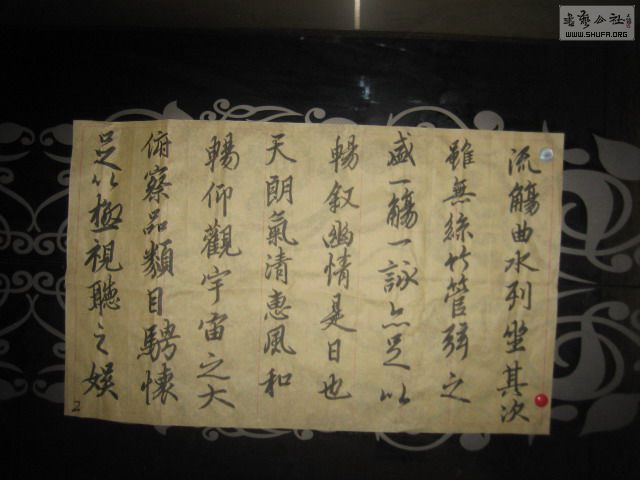 流觴曲水列坐其次
雖無絲竹管弦之
盛一觴一詠亦足以
暢叙幽情是日也
天朗氣清惠風和
暢仰觀宇宙之大
俯察品類目騁懷
足以極視聽之娛
2
書藝公社
WWW.SHUFA.ORG